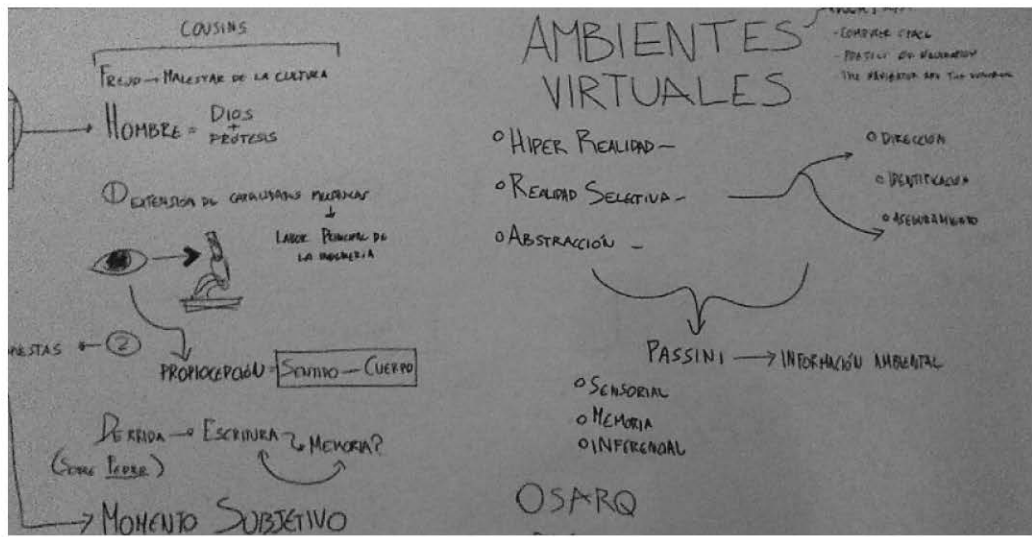 COUSINS
FREUD → MALESTAR DE LA CULTURA
HOMBRE = DIOS
+
PRÓTESIS
① EXTENSIÓN DE
LABOR PRINCIPAL DE
LA INGENIERIA
②
PROPIOCEPCIÓN = SENTIDO — CUERPO
DERRIDA → ESCRITURA MEMORIA?
(SOBRE
MOMENTO SUBJETIVO
AMBIENTES
VIRTUALES
- COMPUTER SPACE
○ HIPER REALIDAD -
○ REALIDAD SELECTIVA -
○ ABSTRACCIÓN -
○ DIRECCIÓN
○ IDENTIFICACION
○ ASEGURAMIENTO
PASSINI → INFORMACIÓN AMBIENTAL
○ SENSORIAL
○ MEMORIA
○ INFERENCIAL
OSARQ